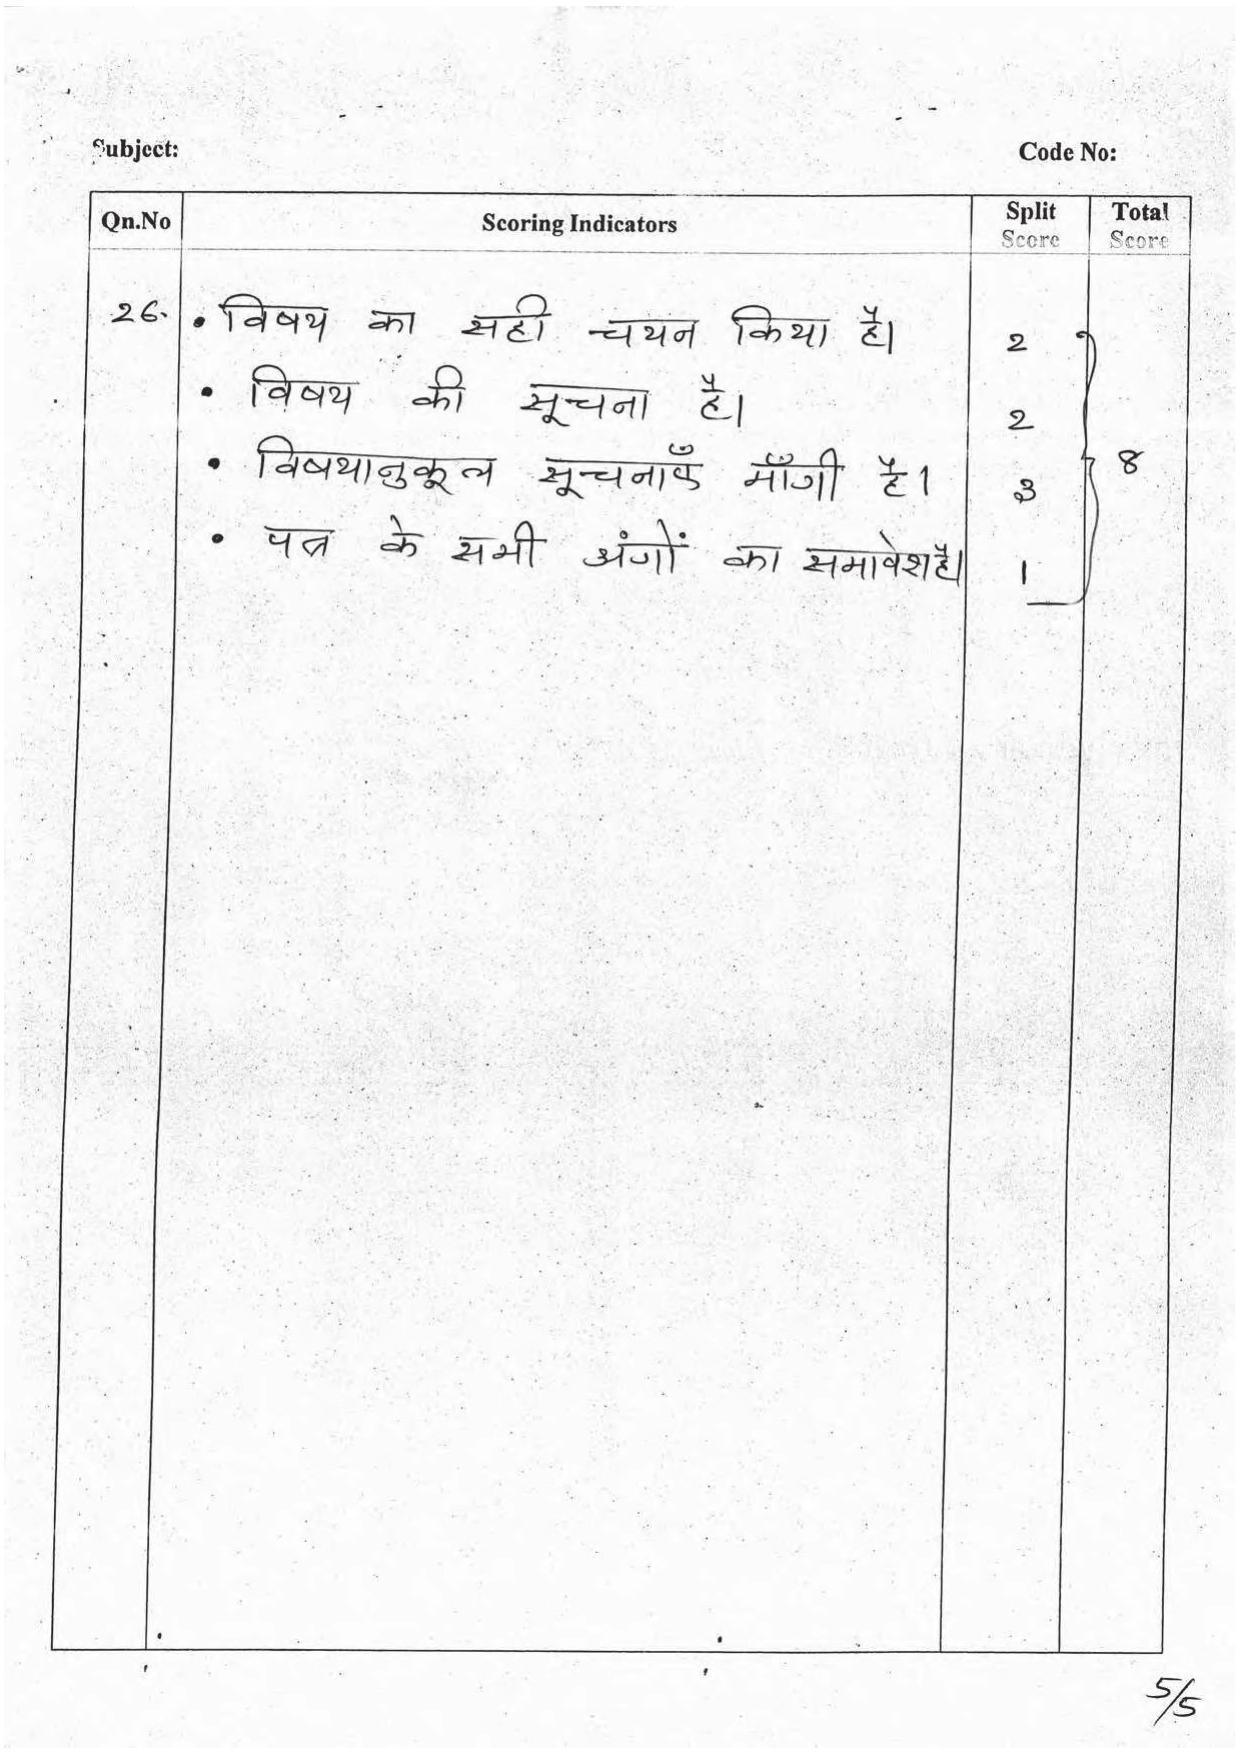 Subject: Code No:
Qn.No Scoring Indicators Split Score Total Score
26. • विषय का सही चयन किया है। 2
• विषय की सूचना है। 2
• विषयानुकूल सूचनाएँ माँगी है। 3 8
• पत्र के सभी अंगों का समावेश है। 1
5/5